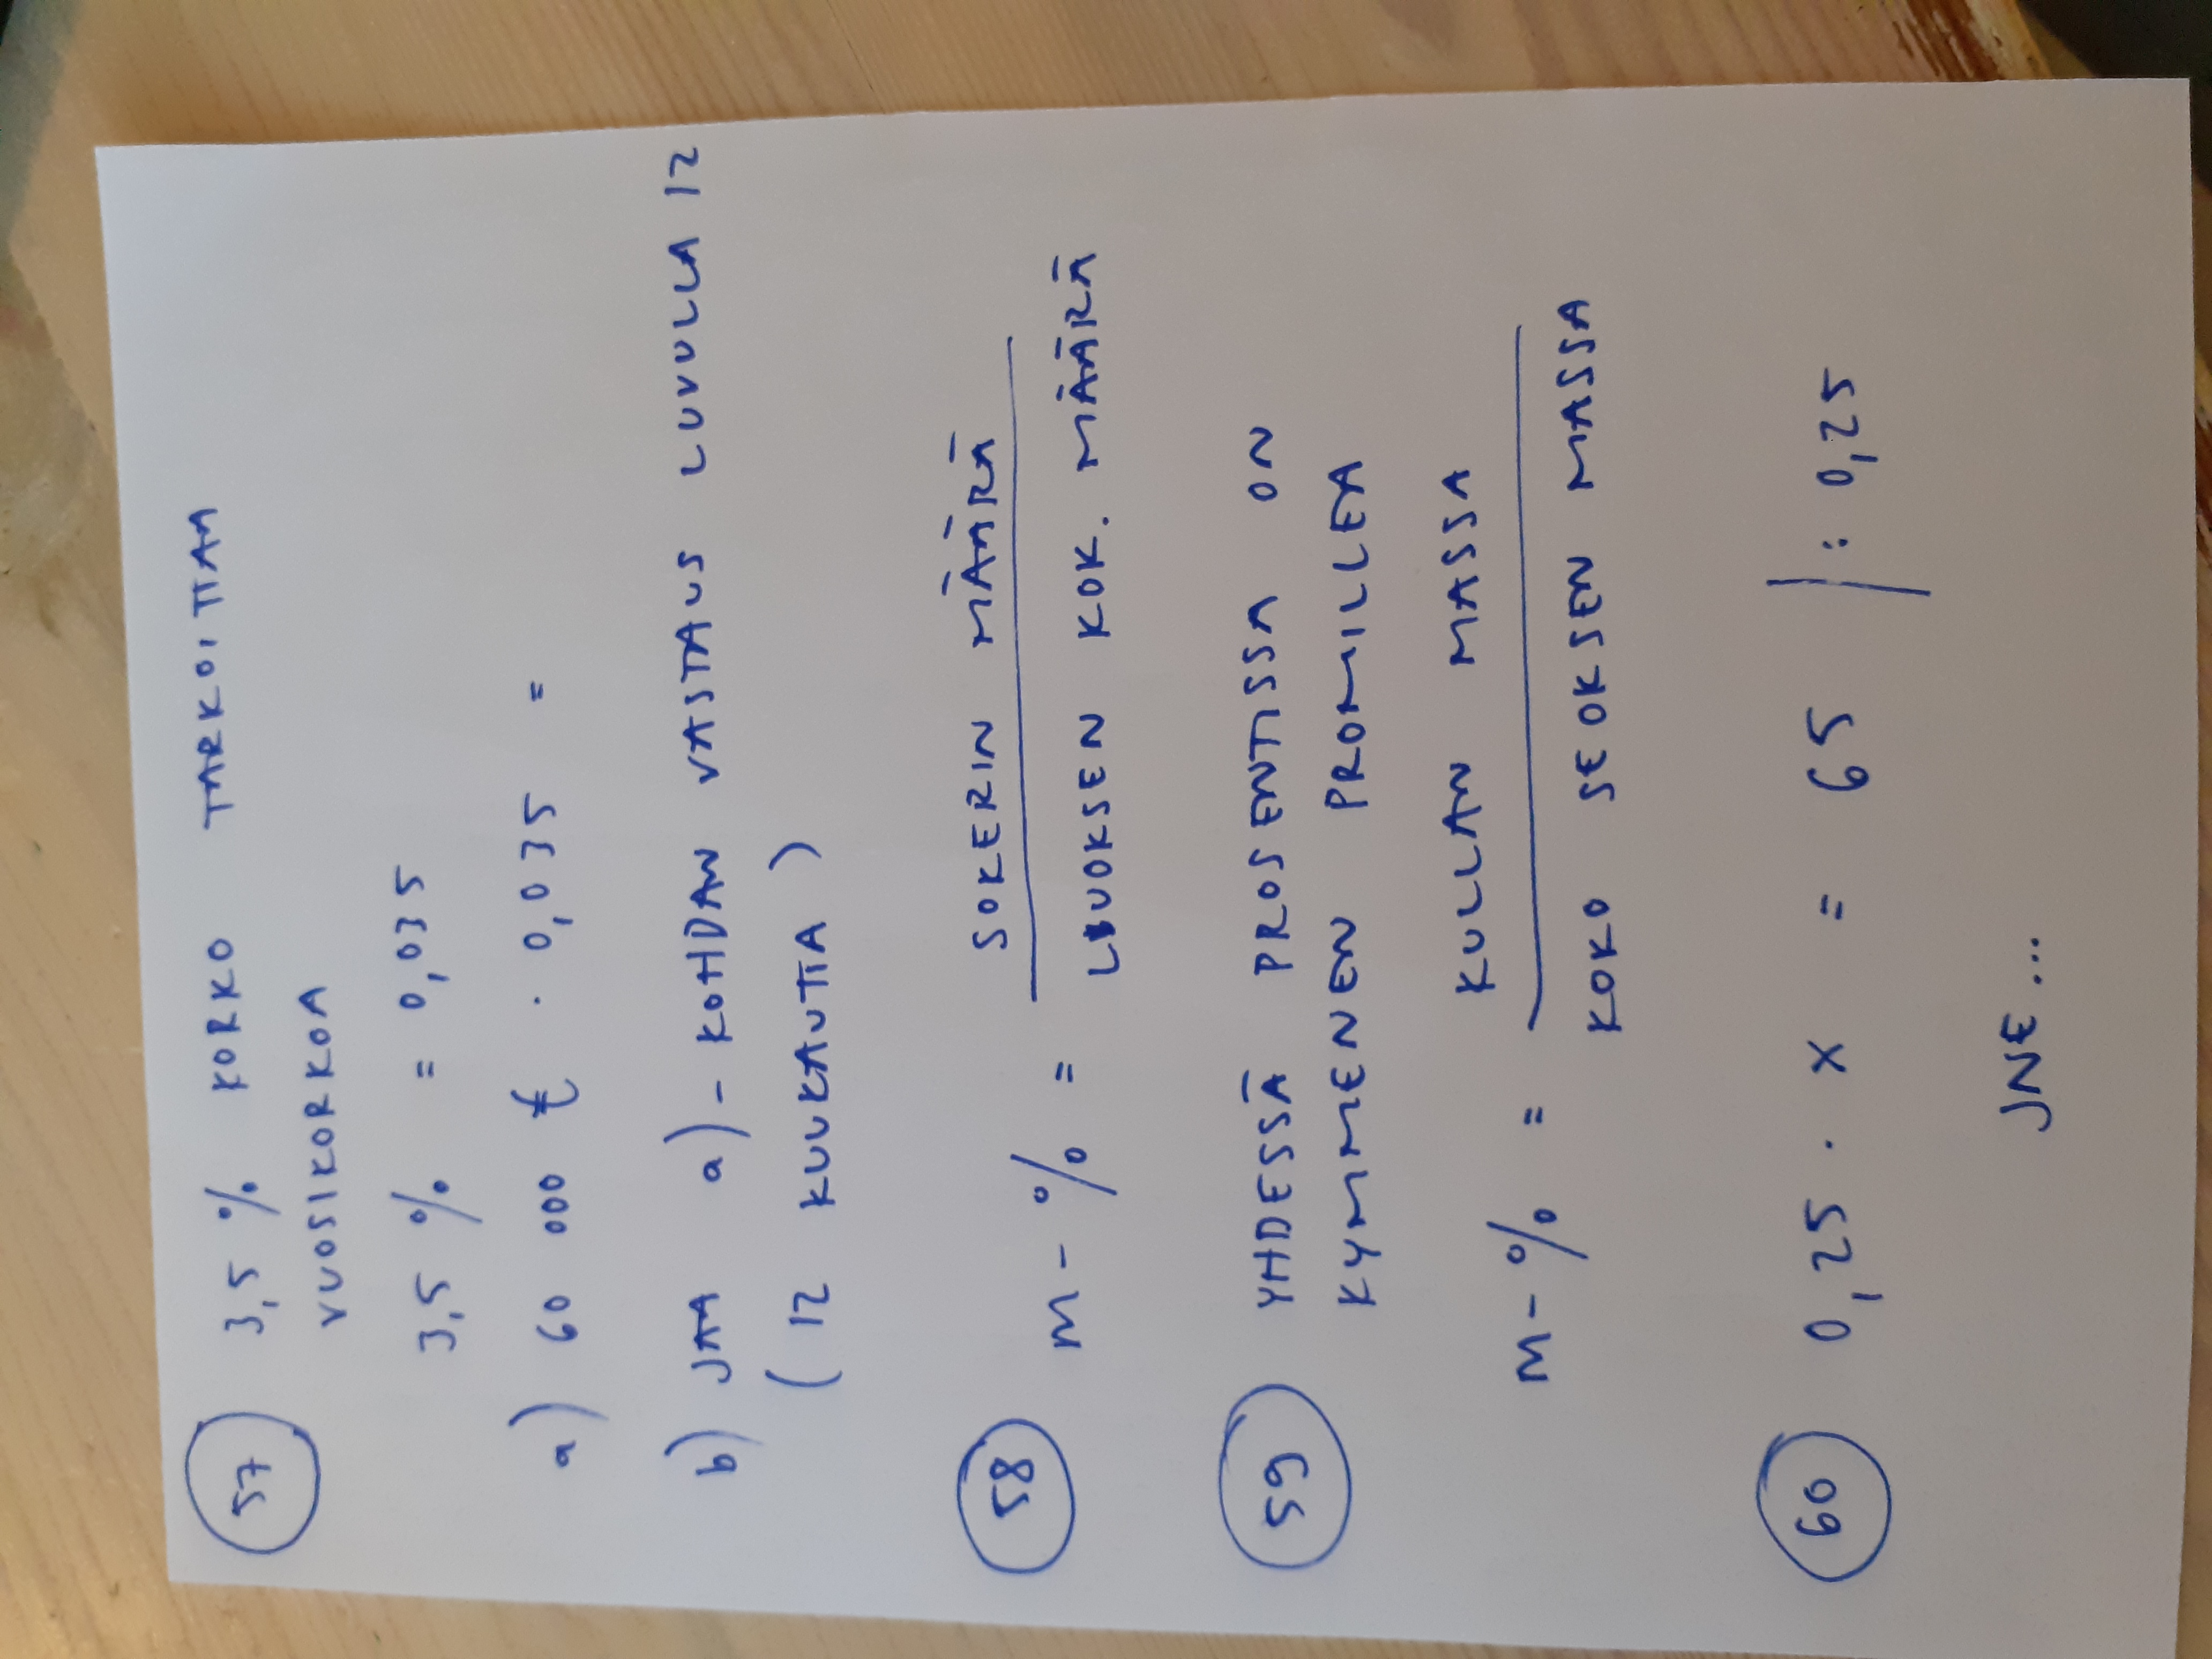 57 3,5 % KORKO TARKOITTAA
VUOSIKORKOA
3,5 % = 0,035
a) 60 000 € · 0,035 =
b) JAA a)-KOHDAN VASTAUS LUVULLA 12
(12 KUUKAUTTA)
58 m-% = SOKERIN MÄÄRÄ
LIUOKSEN KOK. MÄÄRÄ
59 YHDESSÄ PROSENTISSA ON
KYMMENEN PROMILLEA
m-% = KULLAN MASSA
KOKO SEOKSEN MASSA
60 0,25 · x = 65 | : 0,25
JNE...